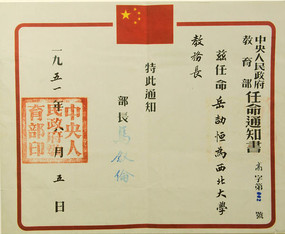 中央人民政府
教育部
任命通知書
高字第 號
兹任命岳劼恒為西北大學
教務長
特此通知
部長 馬叙倫
一九五一年八月五日
中央人
民政府教
育部印